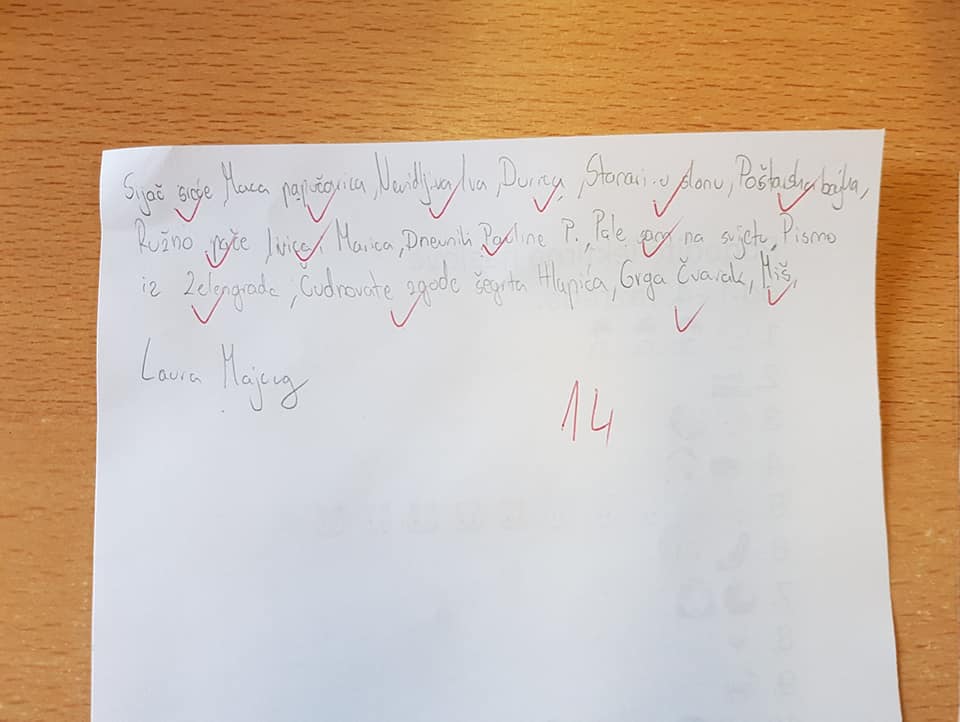 Sijač sreće, Maca papučarica, Nevidljiva Iva, Durica, Stanari u slonu, Poštarska bajka,
Ružno pače, Ivica i Marica, Dnevnik Pauline P., Pale sam na svijetu, Pismo
iz Zelengrada, Čudnovate zgode šegrta Hlapića, Grga Čvarak, Miš,
Laura Majceg
14